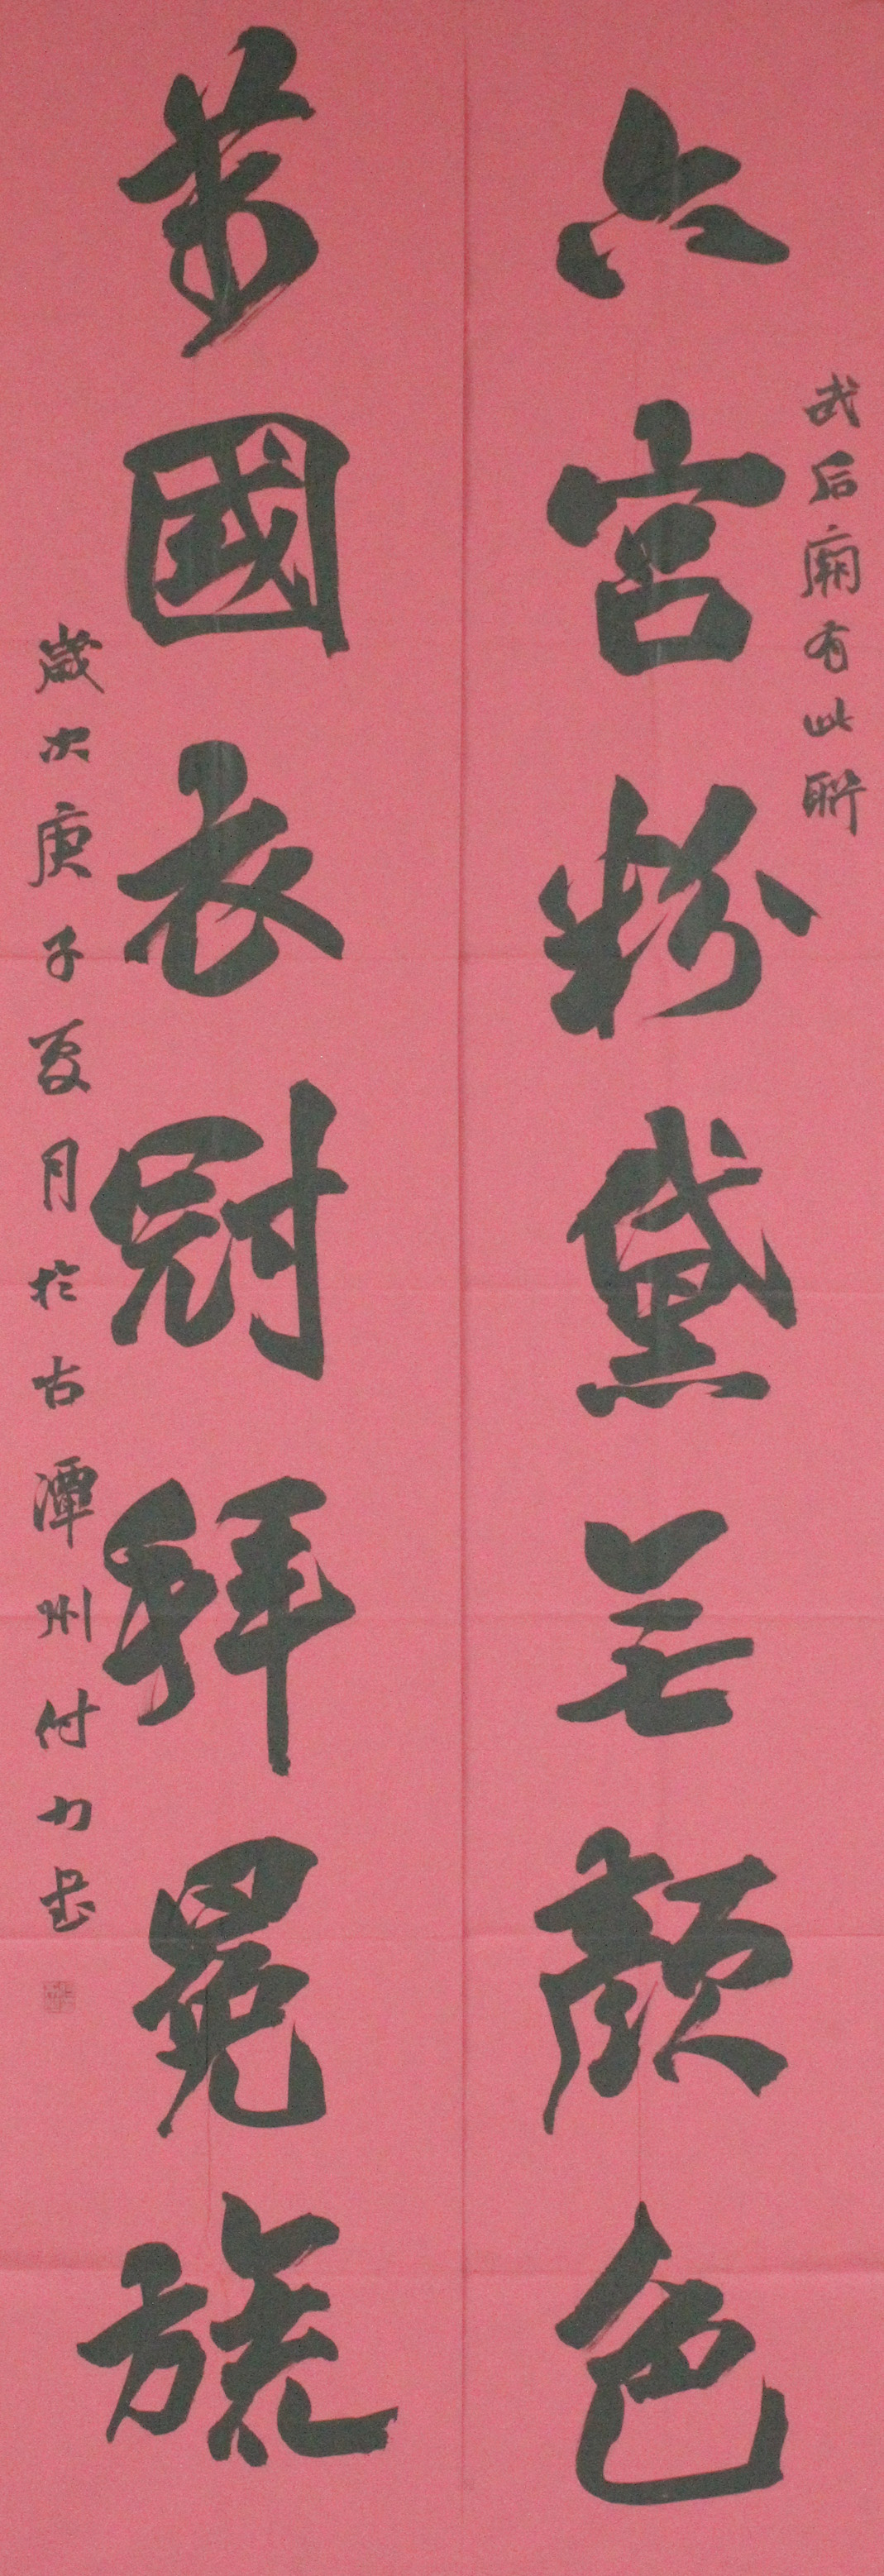 武后廟有此聨
六宮粉黛无顏色
萬國衣冠拜冕旒
歲次庚子夏月於古潭州付力书